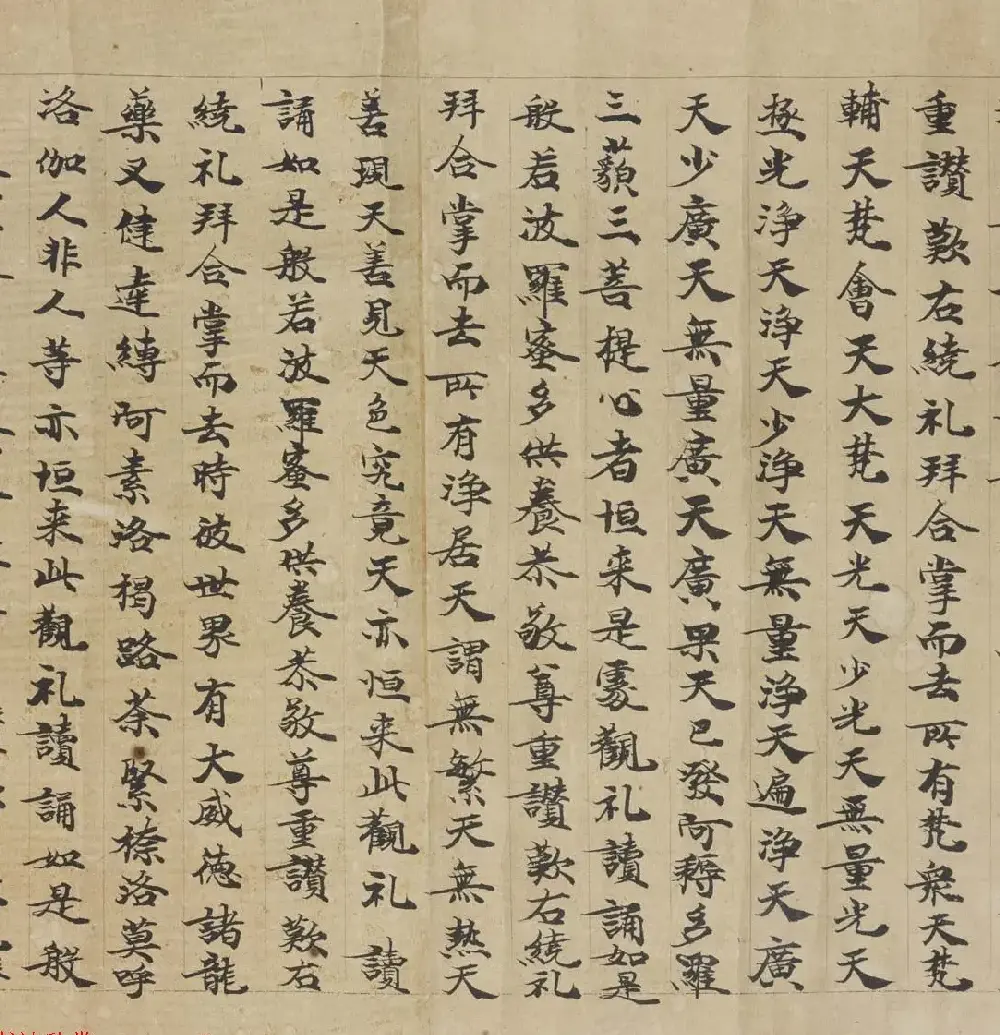 重讚歎右繞礼拜合掌而去所有梵衆天梵
輔天梵會天大梵天光天少光天無量光天
極光淨天淨天少淨天無量淨天遍淨天廣
天少廣天無量廣天廣果天已發阿耨多羅
三藐三菩提心者恒来是處觀礼讀誦如是
般若波羅蜜多供養恭敬尊重讚歎右繞礼
拜合掌而去所有淨居天謂無繁天無熱天
善現天善見天色究竟天亦恒来此觀礼讀
誦如是般若波羅蜜多供養恭敬尊重讚歎右
繞礼拜合掌而去時彼世界有大威德諸龍
藥叉健達縛阿素洛揭路荼緊捺洛莫呼
洛伽人非人等亦恒来此觀礼讀誦如是般